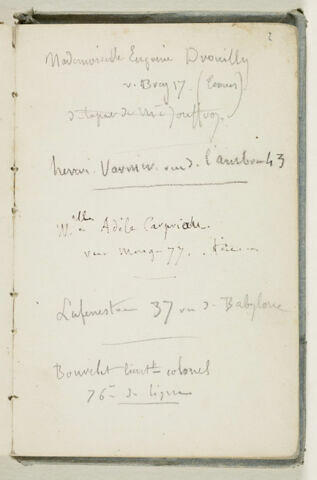 2
Mademoiselle Eugénie Drouilly
r. Brey 17 (Ternes)
de Mme Jouffroy
henri Varnier rue de 43
Mlle Adèle
rue monge 77.
Lafenestre 37 rue de Babylone
Bouvelet lieutt colonel
76e de ligne